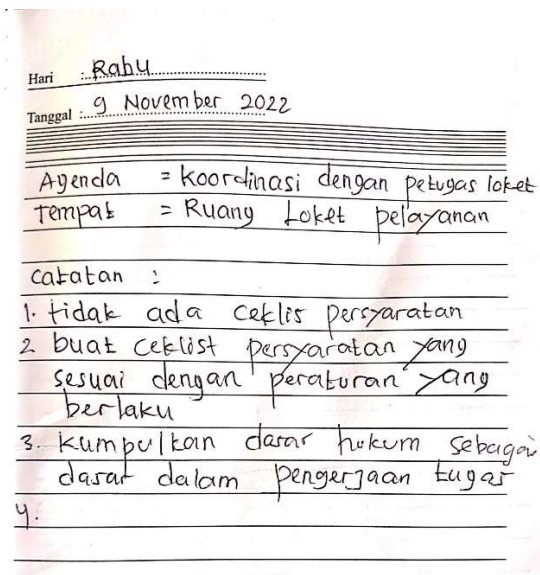 Hari : Rabu
Tanggal : 9 November 2022
Agenda = koordinasi dengan petugas loket
Tempat = Ruang Loket pelayanan
catatan :
1. tidak ada ceklis persyaratan
2 buat ceklist persyaratan yang
sesuai dengan peraturan yang
berlaku
3. kumpulkan dasar hukum sebagai
dasar dalam pengerjaan tugas
4.